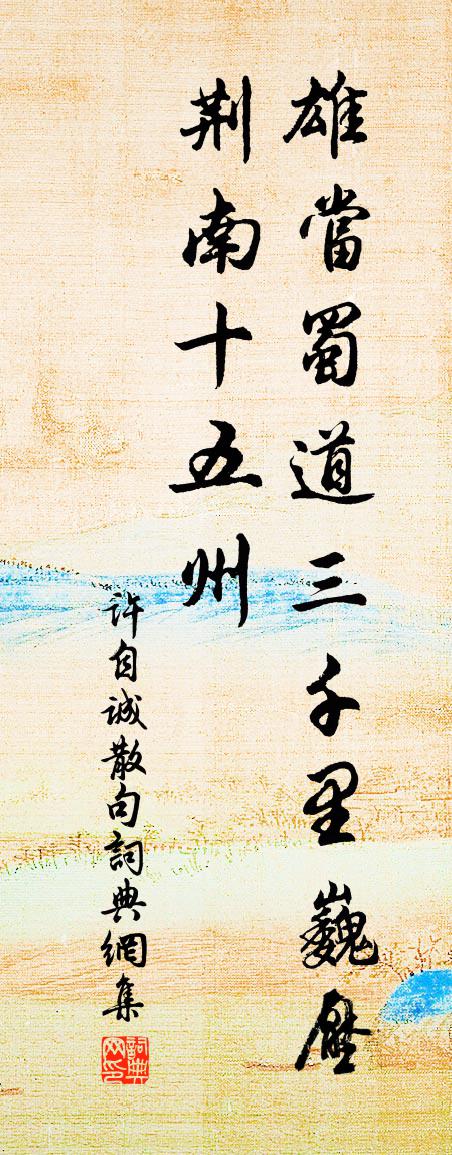 雄當蜀道三千里巍壓
荆南十五州
許自誠散句詞典網集
詞典网印